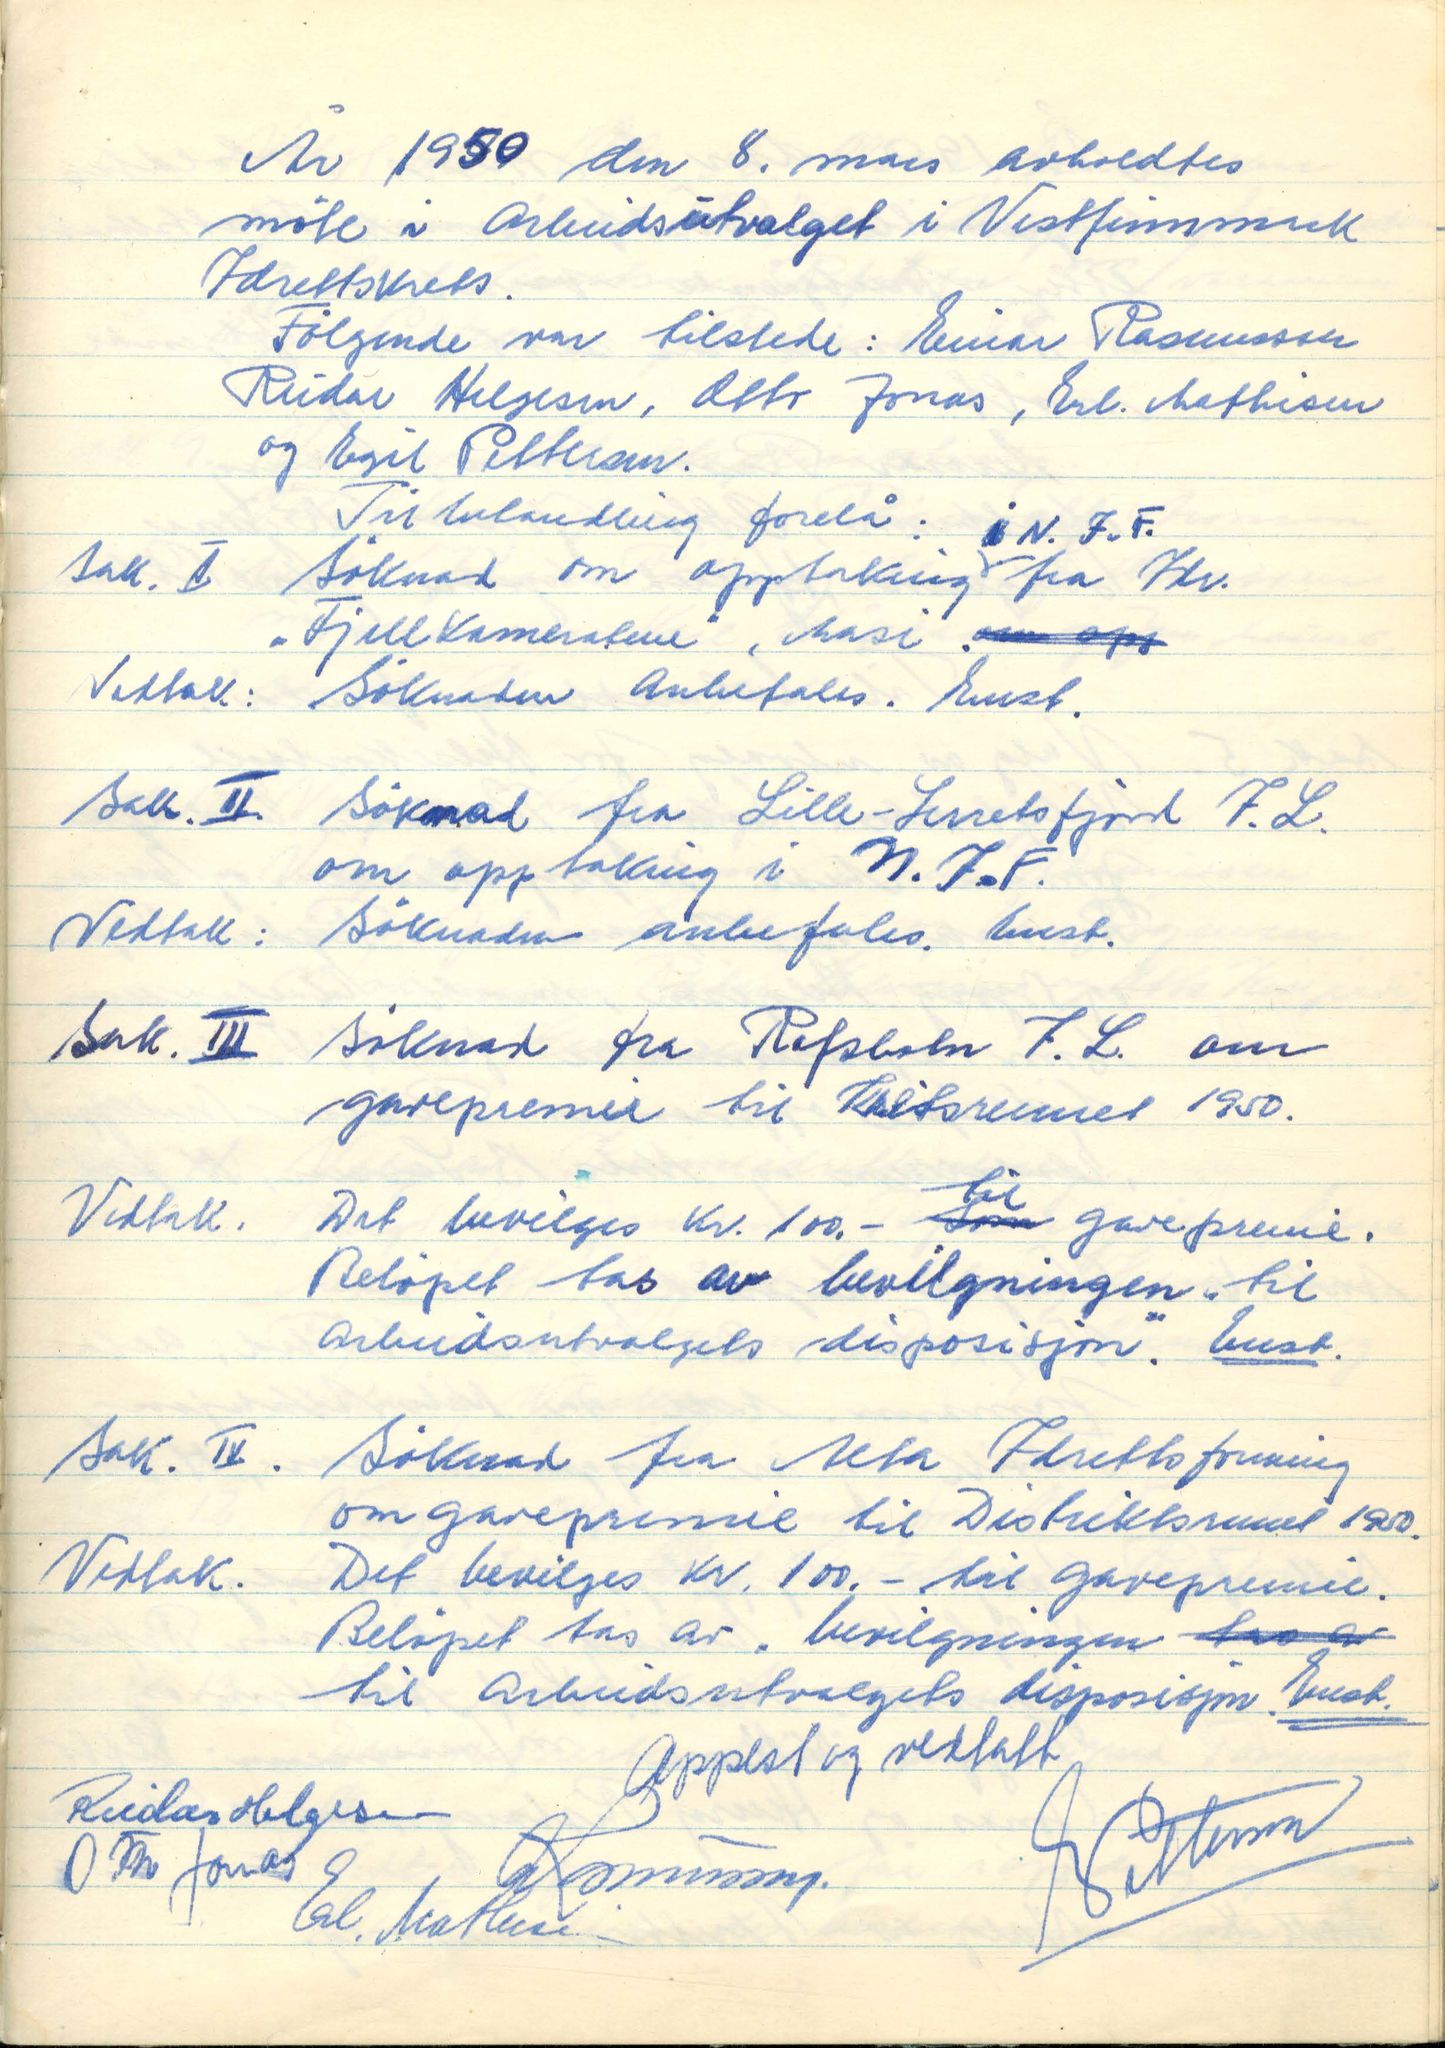 År 1950 den 8. mars avholdtes
möte i Arbeidsutvalget i Vestfinnmark
Idrettskrets.
Följende var tilstede: Einar Rasmussen
Reidar Helgesen, Otto Jonas, Erl. Mathisen
og Egil Pettersen.
Til behandling forelå:
Sak. I Söknad om opptaking i N. I. F. fra Idr.
"Fjellkameratene", Masi. om opp
Vedtak: Söknaden anbefales. Enst.
Sak. II. Söknad fra Lille-Lerretsfjord I. L.
om opptaking i N. I. F.
Vedtak: Söknaden anbefales. Enst.
Sak. III Söknad fra Rafsbotn I. L. om
gavepremie til Kretsrennet 1950.
Vedtak. Det bevilges kr. 100.- som til gavepremie.
Belöpet tas av bevilgningen „til
arbeidsutvalgets disposisjon". Enst.
Sak. IV. Söknad fra Alta Idrettsforening
om gavepremie til Distriktsrennet 1950.
Vedtak. Det bevilges kr. 100.- til gavepremie.
Belöpet tas av „bevilgningen tas av
til arbeidsutvalgets disposisjon. Enst.
Opplest og vedtatt
Reidar Helgesen
O Th Jonas
Erl. Mathisen
E Pettersen